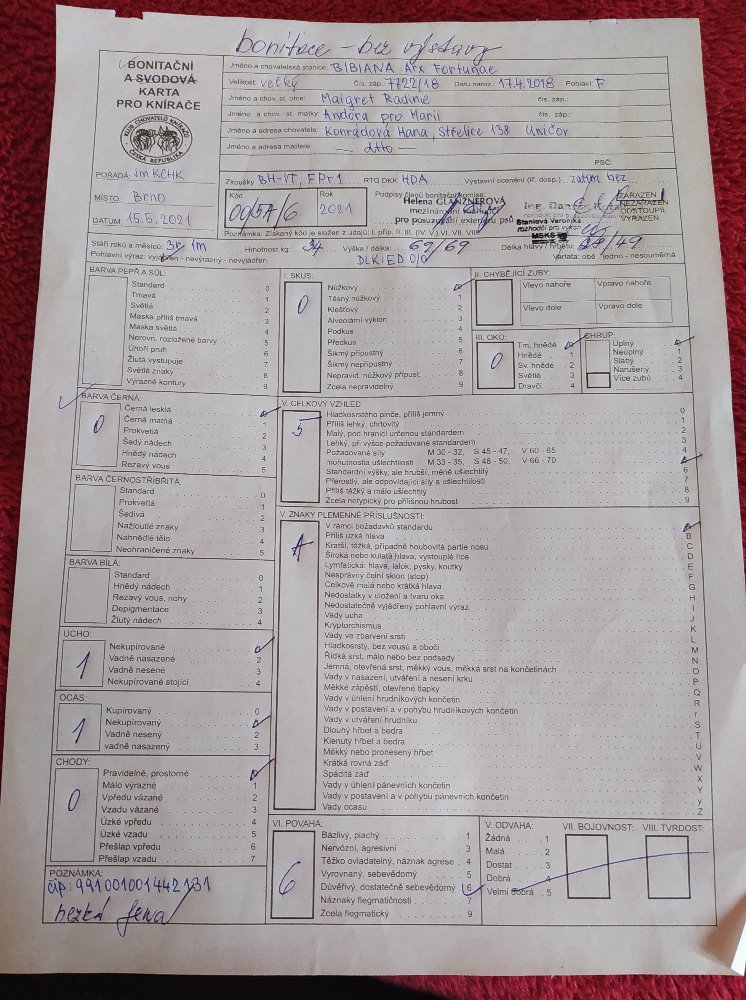 bonitace – bez výstavy
BONITAČNÍ
A SVODOVÁ
KARTA
PRO KNÍRAČE
KLUB CHOVATELŮ KNÍRAČŮ
ČESKÁ REPUBLIKA
Jméno a chovatelská stanice: BIBIANA Arx Fortunae
Velikost: velký Čís. záp. 7722/18 Datu naroz.: 17.4.2018 Pohlaví: F
Jméno a chov. st. otce: Maigret Radine čís. záp.
Jméno a chov. st. matky: Andora pro Marii čís. záp.:
Jméno a adresa chovatele: Konrádová Hana, Střelice 138 Uničov
Jméno a adresa majitele: — dtto —
PSČ:
POŘADÁ: JmKCHK
MÍSTO: Brno
DATUM: 15.5.2021
Zkoušky BH-VT, FPr1 RTG DKK HDA Výstavní ocenění (tř. dosp.) zatím bez
Kód 005A/6
Rok 2021
Podpisy členů bonitační komise:
Helena GLANZNEROVÁ
mezinárodní rozhodčí
pro posuzování exteriéru psů
Staniová Veronika
rozhodčí pro výkon
MSKS
ZAŘAZEN
NEZAŘAZEN
ODSTOUPIL
VYŘAZEN
Poznámka: Získaný kód je složen z údajů: I. příp. II. III. (IV. V.) VI. VII. VIII.
Stáří roků a měsíců: 3r. 1m Hmotnost kg: 34 Výška / délka: 69/69 Délka hlavy / hřbetu: 28/49
Pohlavní výraz: vyjádřen - nevýrazný - nevyjádřen DLK:ED 0/0 Varlata: obě - jedno - nesouměrná
BARVA PEPŘ A SŮL:
Standard 0
Tmavá 1
Světlá 2
Maska příliš tmavá 3
Maska světlá 4
Nerovn. rozložené barvy 5
Úhoří pruh 6
Žlutá vystupuje 7
Světlé znaky 8
Výrazné kontury 9
BARVA ČERNÁ:
0
Černá lesklá 0
Černá matná 1
Prokvetlá 2
Šedý nádech 3
Hnědý nádech 4
Rezavý vous 5
BARVA ČERNOSTŘÍBŘITÁ:
Standard 0
Prokvetlá 1
Šedivá 2
Nažloutlé znaky 3
Nahnědlé tělo 4
Neohraničené znaky 5
BARVA BÍLÁ:
Standard 0
Hnědý nádech 1
Rezavý vous, nohy 2
Depigmentace 3
Žlutý nádech 4
UCHO:
1
Nekupírované 1
Vadně nasazené 2
Vadně nesené 3
Nekupírované stojící 4
OCAS:
1
Kupírovaný 0
Nekupírovaný 1
Vadně nesený 2
vadně nasazený 3
CHODY:
0
Pravidelné, prostorné 0
Málo výrazné 1
Vpředu vázané 2
Vzadu vázané 3
Úzké vpředu 4
Úzké vzadu 5
Přešlap vpředu 6
Přešlap vzadu 7
POZNÁMKA:
čip: 991001001442131
hezká fena
I. SKUS:
0
Nůžkový 0
Těsný nůžkový 1
Klešťový 2
Alveolární výklon 3
Podkus 4
Předkus 5
Šikmý přípustný 6
Šikmý nepřípustný 7
Nepravid. nůžkový přípust. 8
Zcela nepravidelný 9
II. CHYBĚJÍCÍ ZUBY:
Vlevo nahoře Vpravo nahoře
Vlevo dole Vpravo dole
III. OKO:
0
Tm. hnědé 0
Hnědé 1
Sv. hnědé 2
Světlé 3
Dravčí 4
CHRUP:
Úplný 0
Neúplný 1
Slabý 2
Narušený 3
Více zubů 4
V. CELKOVÝ VZHLED:
5
Hladkosrstého pinče, příliš jemný 0
Příliš lehký, chrtovitý 1
Malý, pod hranicí určenou standardem 2
Lehký, při výšce požadované standardem 3
Požadované síly M 30 - 32, S 45 - 47, V 60 - 65 4
mohutnosti a ušlechtilosti M 33 - 35, S 48 - 50, V 66 - 70 5
Standardní výšky, ale hrubší, méně ušlechtilý 6
Přerostlý, ale odpovídající síly a ušlechtilosti 7
Příliš těžký a málo ušlechtilý 8
Zcela netypický pro přílišnou hrubost 9
V. ZNAKY PLEMENNÉ PŘÍSLUŠNOSTI:
A
V rámci požadavků standardu A
Příliš úzká hlava B
Kratší, těžká, případně houbovitá partie nosu C
Široká nebo kulatá hlava, vystouplé líce D
Lymfatická: hlava, lalok, pysky, koutky E
Nesprávný čelní sklon (stop) F
Celkově malá nebo krátká hlava G
Nedostatky v uložení a tvaru oka H
Nedostatečně vyjádřený pohlavní výraz I
Vady ucha J
Kryptorchismus K
Vady ve zbarvení srsti L
Hladkosrstý, bez vousů a obočí M
Řídká srst, málo nebo bez podsady N
Jemná, otevřená srst, měkký vous, měkká srst na končetinách O
Vady v nasazení, utváření a nesení krku P
Měkké zápěstí, otevřené tlapky Q
Vady v úhlení hrudníkových končetin R
Vady v postavení a v pohybu hrudníkových končetin r
Vady v utváření hrudníku S
Dlouhý hřbet a bedra T
Klenutý hřbet a bedra U
Měkký nebo pronesený hřbet V
Krátká rovná záď W
Spáditá záď X
Vady v úhlení pánevních končetin Y
Vady v postavení a v pohybu pánevních končetin y
Vady ocasu Z
VI. POVAHA:
6
Bázlivý, plachý 1
Nervózní, agresivní 3
Těžko ovladatelný, náznak agrese 4
Vyrovnaný, sebevědomý 5
Důvěřivý, dostatečně sebevědomý 6
Náznaky flegmatičnosti 7
Zcela flegmatický 9
V. ODVAHA:
Žádná 1
Malá 2
Dostat 3
Dobrá 4
Velmi dobrá 5
VII. BOJOVNOST:
VIII. TVRDOST: